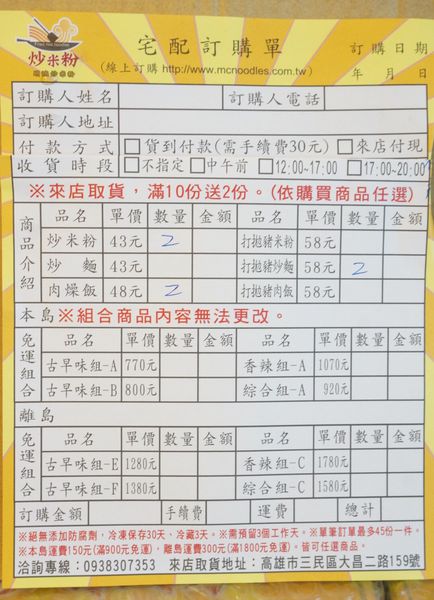 宅配訂購單
訂購日期
炒米粉
(線上訂購 http://www.mcnoodles.com.tw)
年 月 日
訂購人姓名 訂購人電話
訂購人地址
付款方式 □貨到付款(需手續費30元) □來店付現
收貨時段 □不指定 □中午前 □12:00~17:00 □17:00~20:00
※來店取貨，滿10份送2份。(依購買商品任選)
商品介紹
品名 單價 數量 金額 品名 單價 數量 金額
炒米粉 43元 2 打拋豬米粉 58元
炒麵 43元 打拋豬炒麵 58元 2
肉燥飯 48元 2 打拋豬肉飯 58元
本島※組合商品內容無法更改。
免運組合
品名 單價 數量 金額 品名 單價 數量 金額
古早味組-A 770元 香辣組-A 1070元
古早味組-B 800元 綜合組-A 920元
離島
免運組合
品名 單價 數量 金額 品名 單價 數量 金額
古早味組-E 1280元 香辣組-C 1780元
古早味組-F 1380元 綜合組-C 1580元
訂購金額 手續費 運費 總計
※絕無添加防腐劑，冷凍保存30天、冷藏3天。※需預留3個工作天。※單筆訂單最多45份一件。
※本島運費150元(滿900元免運)，離島運費300元(滿1800元免運)。皆可任選商品。
洽詢專線：0938307353 來店取貨地址：高雄市三民區大昌二路159號